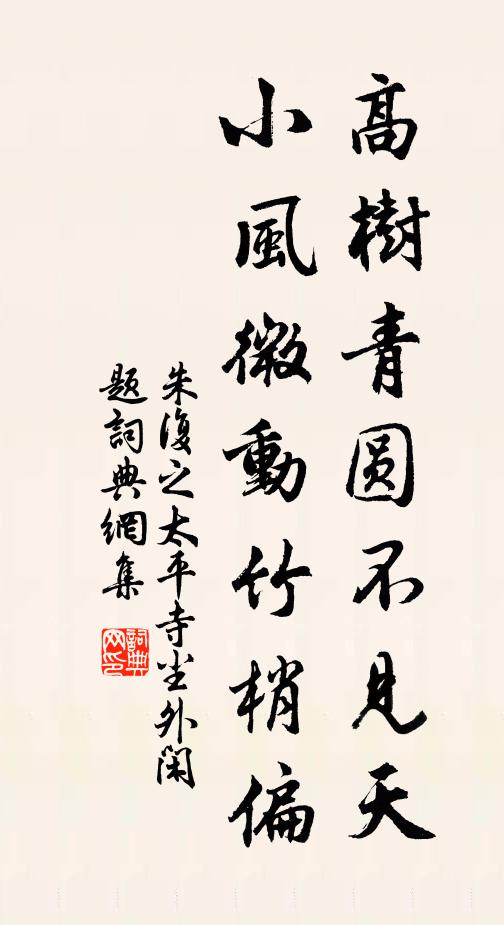 高樹青圆不見天
小風微動竹梢偏
朱復之太平寺尘外閑
题詞典網集
詞典网印